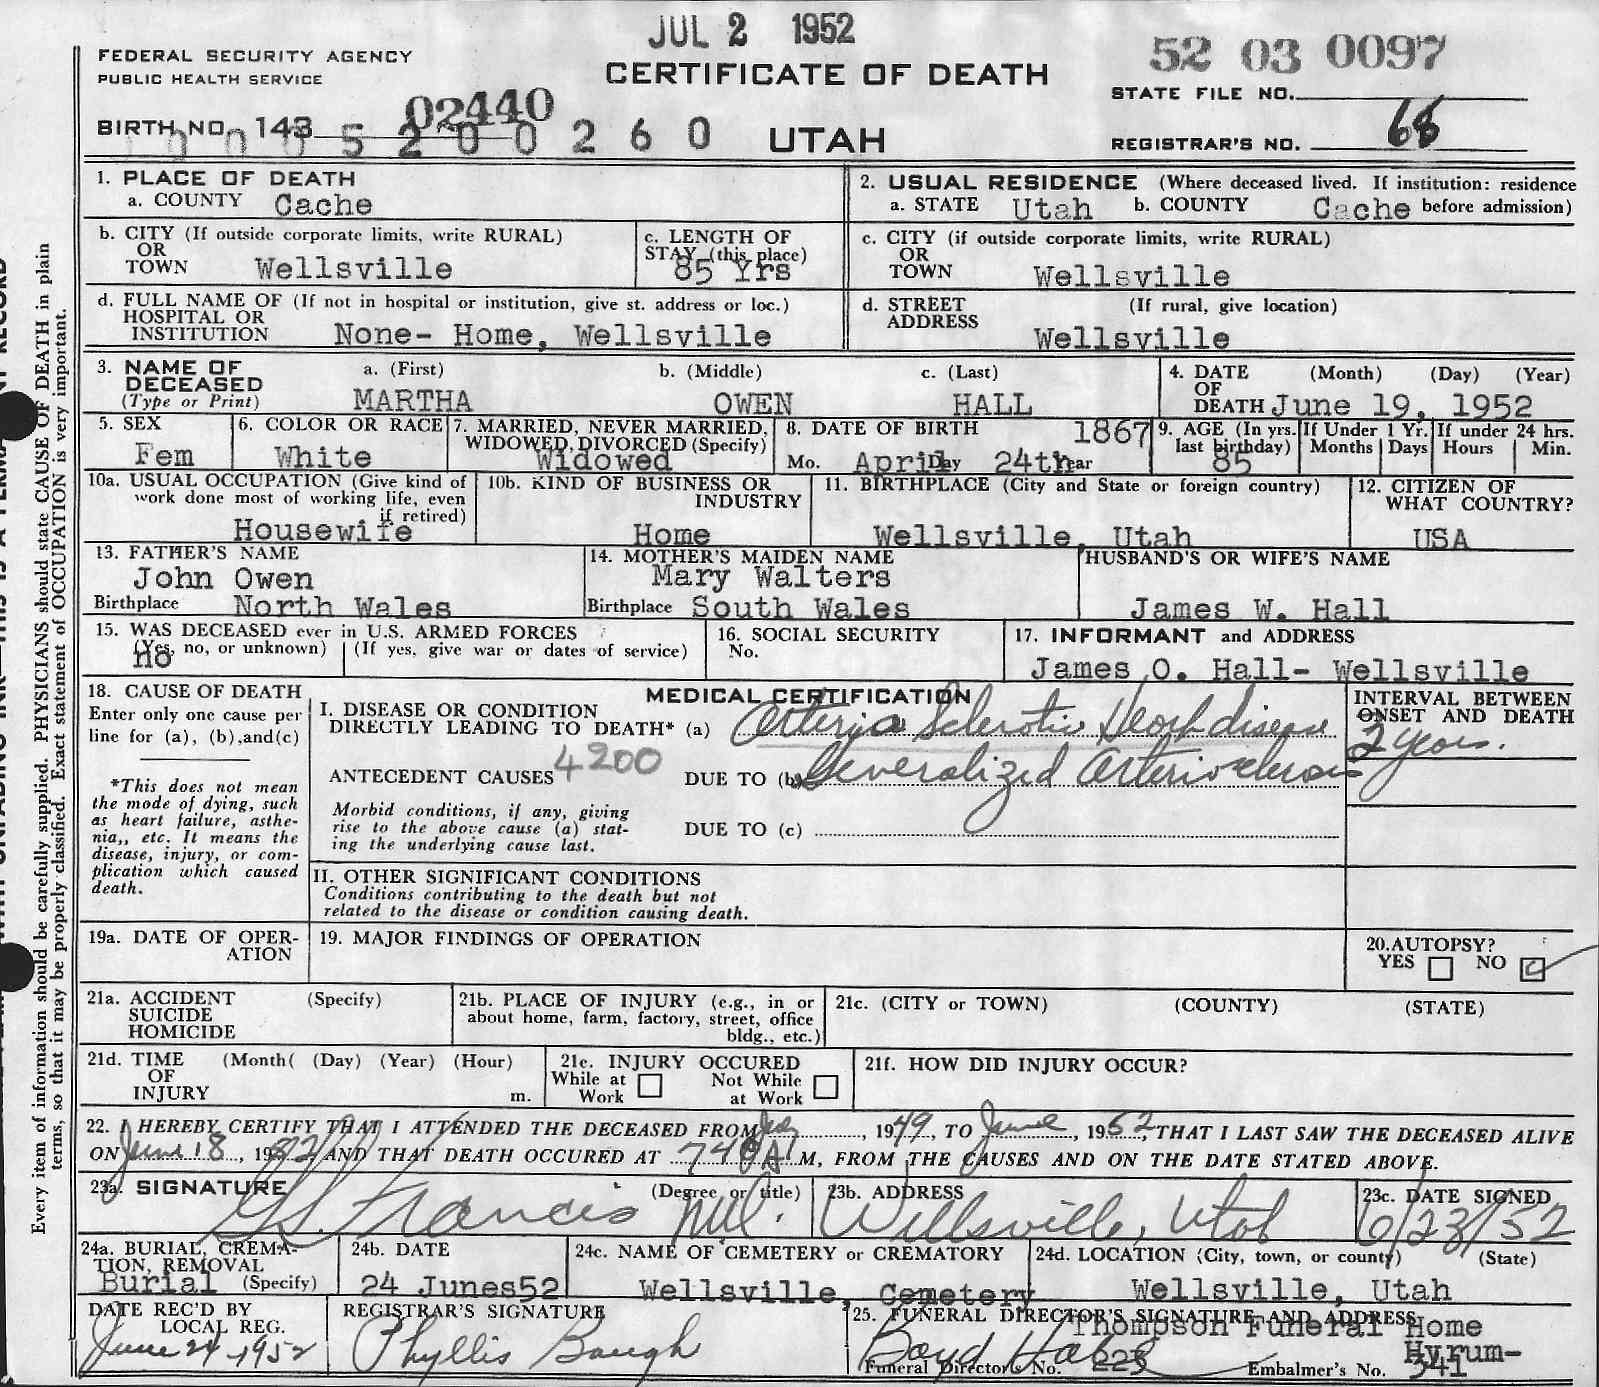 JUL 2 1952
FEDERAL SECURITY AGENCY
PUBLIC HEALTH SERVICE
CERTIFICATE OF DEATH
52 03 0097
STATE FILE NO.
02440
BIRTH NO. 143
5 2 0 0 2 6 0
UTAH
REGISTRAR'S NO. 68
1. PLACE OF DEATH
a. COUNTY Cache
2. USUAL RESIDENCE (Where deceased lived. If institution: residence
a. STATE Utah b. COUNTY Cache before admission)
b. CITY (If outside corporate limits, write RURAL)
OR
TOWN Wellsville
c. LENGTH OF
STAY (this place)
85 Yrs
c. CITY (if outside corporate limits, write RURAL)
OR
TOWN Wellsville
d. FULL NAME OF (If not in hospital or institution, give st. address or loc.)
HOSPITAL OR
INSTITUTION None- Home, Wellsville
d. STREET (If rural, give location)
ADDRESS
Wellsville
3. NAME OF a. (First) b. (Middle) c. (Last)
DECEASED
(Type or Print) MARTHA OWEN HALL
4. DATE (Month) (Day) (Year)
OF
DEATH June 19, 1952
5. SEX
Fem
6. COLOR OR RACE
White
7. MARRIED, NEVER MARRIED,
WIDOWED, DIVORCED (Specify)
Widowed
8. DATE OF BIRTH 1867
Mo. April Day 24th Year
9. AGE (In yrs.
last birthday)
85
If Under 1 Yr.
Months Days
If under 24 hrs.
Hours Min.
10a. USUAL OCCUPATION (Give kind of
work done most of working life, even
if retired)
Housewife
10b. KIND OF BUSINESS OR
INDUSTRY
Home
11. BIRTHPLACE (City and State or foreign country)
Wellsville, Utah
12. CITIZEN OF
WHAT COUNTRY?
USA
13. FATHER'S NAME
John Owen
Birthplace North Wales
14. MOTHER'S MAIDEN NAME
Mary Walters
Birthplace South Wales
HUSBAND'S OR WIFE'S NAME
James W. Hall
15. WAS DECEASED ever in U.S. ARMED FORCES
(Yes, no, or unknown) (If yes, give war or dates of service)
no
16. SOCIAL SECURITY
No.
17. INFORMANT and ADDRESS
James O. Hall- Wellsville
18. CAUSE OF DEATH
Enter only one cause per
line for (a), (b),and(c)
*This does not mean
the mode of dying, such
as heart failure, asthe-
nia,, etc. It means the
disease, injury, or com-
plication which caused
death.
MEDICAL CERTIFICATION
I. DISEASE OR CONDITION
DIRECTLY LEADING TO DEATH* (a) Arteria Sclerotic Heart disease
INTERVAL BETWEEN
ONSET AND DEATH
2 years.
ANTECEDENT CAUSES 4200 DUE TO (b) Generalized Arteriosclerosis
Morbid conditions, if any, giving
rise to the above cause (a) stat-
ing the underlying cause last.
DUE TO (c)
II. OTHER SIGNIFICANT CONDITIONS
Conditions contributing to the death but not
related to the disease or condition causing death.
19a. DATE OF OPER-
ATION
19. MAJOR FINDINGS OF OPERATION
20.AUTOPSY?
YES NO
21a. ACCIDENT (Specify)
SUICIDE
HOMICIDE
21b. PLACE OF INJURY (e.g., in or
about home, farm, factory, street, office
bldg., etc.)
21c. (CITY or TOWN) (COUNTY) (STATE)
21d. TIME (Month( (Day) (Year) (Hour)
OF
INJURY m.
21e. INJURY OCCURED
While at Not While
Work at Work
21f. HOW DID INJURY OCCUR?
22. I HEREBY CERTIFY THAT I ATTENDED THE DECEASED FROM July, 1949, TO June, 1952, THAT I LAST SAW THE DECEASED ALIVE
ON June 18, 1952 AND THAT DEATH OCCURED AT 740 A M, FROM THE CAUSES AND ON THE DATE STATED ABOVE.
23a. SIGNATURE (Degree or title)
Francis M.D.
23b. ADDRESS
Wellsville, Utah
23c. DATE SIGNED
6/23/52
24a. BURIAL, CREMA-
TION, REMOVAL
Burial (Specify)
24b. DATE
24 Junes52
24c. NAME OF CEMETERY or CREMATORY
Wellsville, Cemetery
24d. LOCATION (City, town, or county) (State)
Wellsville, Utah
DATE REC'D BY
LOCAL REG.
June 24-1952
REGISTRAR'S SIGNATURE
Phyllis Baugh
25. FUNERAL DIRECTOR'S SIGNATURE AND ADDRESS
Thompson Funeral Home
Boyd Hyrum-
Funeral Director's No. 223 Embalmer's No. 341
Every item of information should be carefully supplied. PHYSICIANS should state CAUSE OF DEATH in plain
terms, so that it may be properly classified. Exact statement of OCCUPATION is very important.